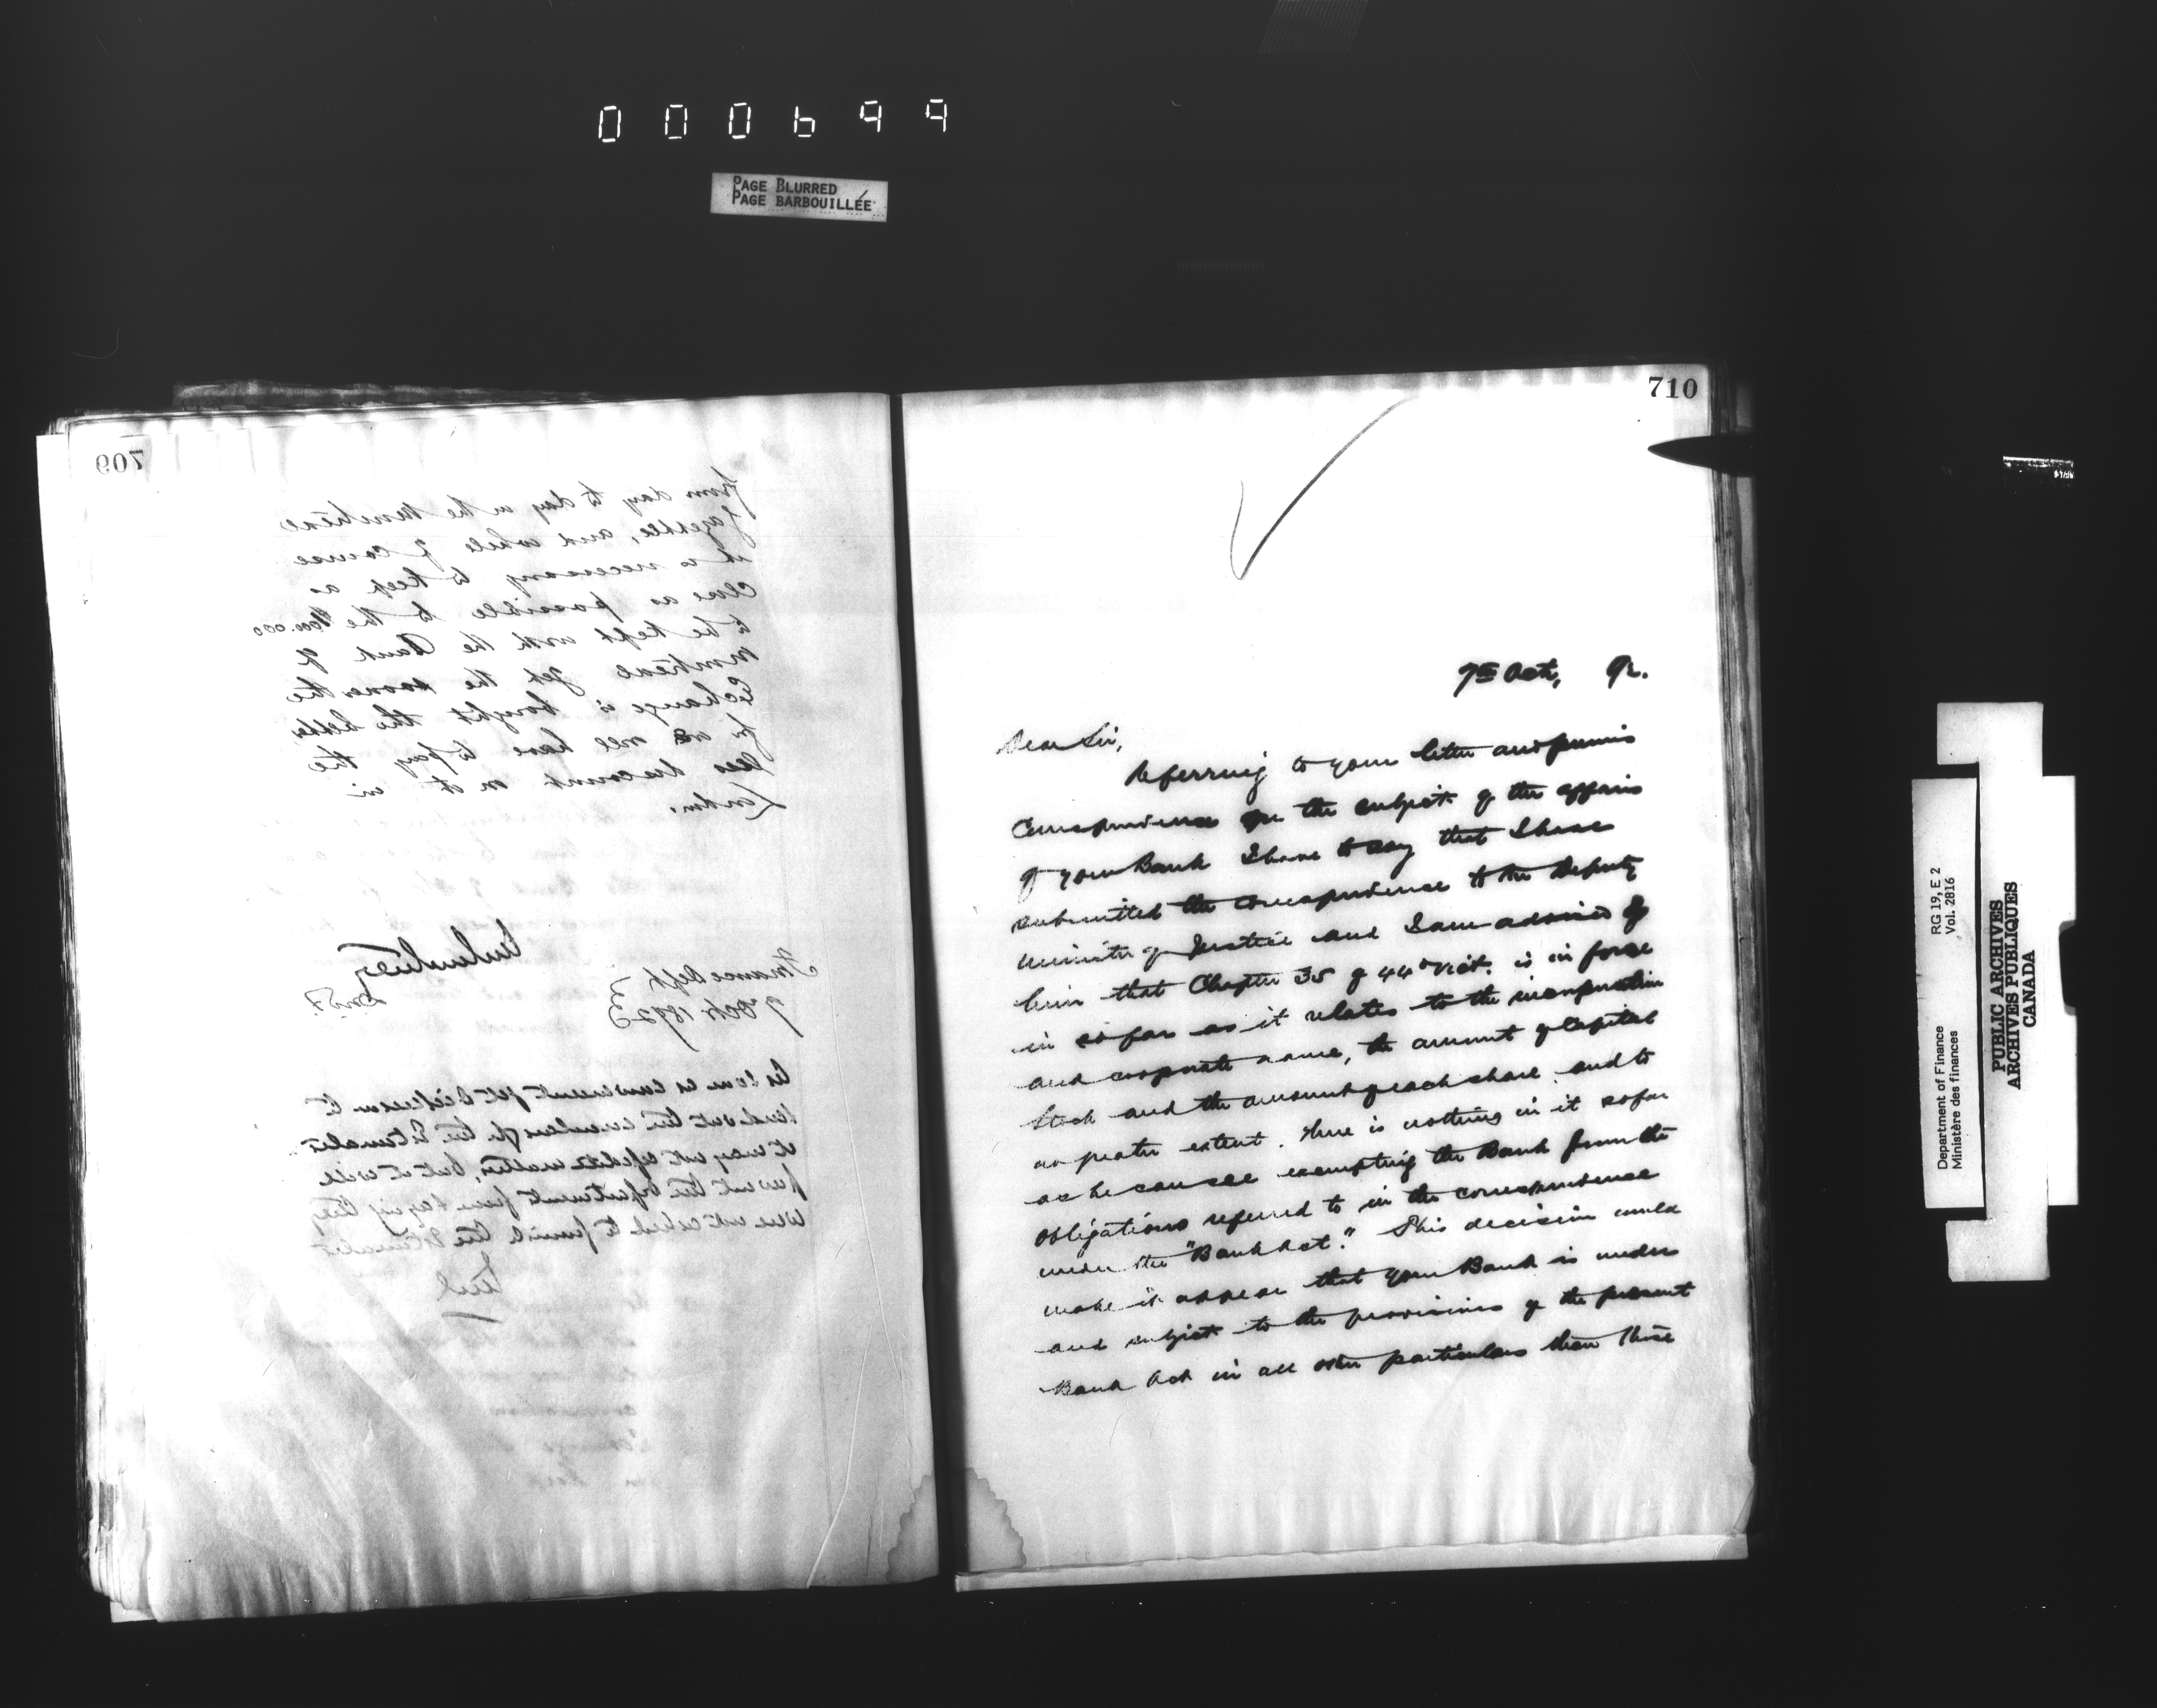 000699
PAGE BLURRED
PAGE BARBOUILLÉE
709
from day to day in the Montreal
Gazette, and while of course
it is necessary to keep as
close as possible to the
to be kept with the Bank of
Montreal yet the sooner the
Exchange is bought the better
for us we have to pay the
less discount on it in
London.
Finance Dept
7 Oct 1892
send out the circular for the Estimates
it may not expedite matters, but it will
prevent the Department from saying they
were not asked to furnish the Estimates
710
7th Oct, 92.
Dear Sir,
Referring to your letter and previous
Correspondence on the subject of the affairs
of your Bank I have to say that I have
submitted the correspondence to the Deputy
Minister of Justice and I am advised by
him that Chapter 35 of 44o Vict. is in force
in so far as it relates to the incorporation
and corporate name, the amount of Capital
Stock and the amount of each share and to
no greater extent. There is nothing in it so far
as he can see exempting the Bank from the
obligations referred to in the correspondence
under the "Bank Act." This decision would
make it appear that your Bank is under
and subject to the provisions of the present
Bank Act in all other particulars than those
Department of Finance RG 19, E 2
Ministère des finances Vol. 2816
PUBLIC ARCHIVES
ARCHIVES PUBLIQUES
CANADA